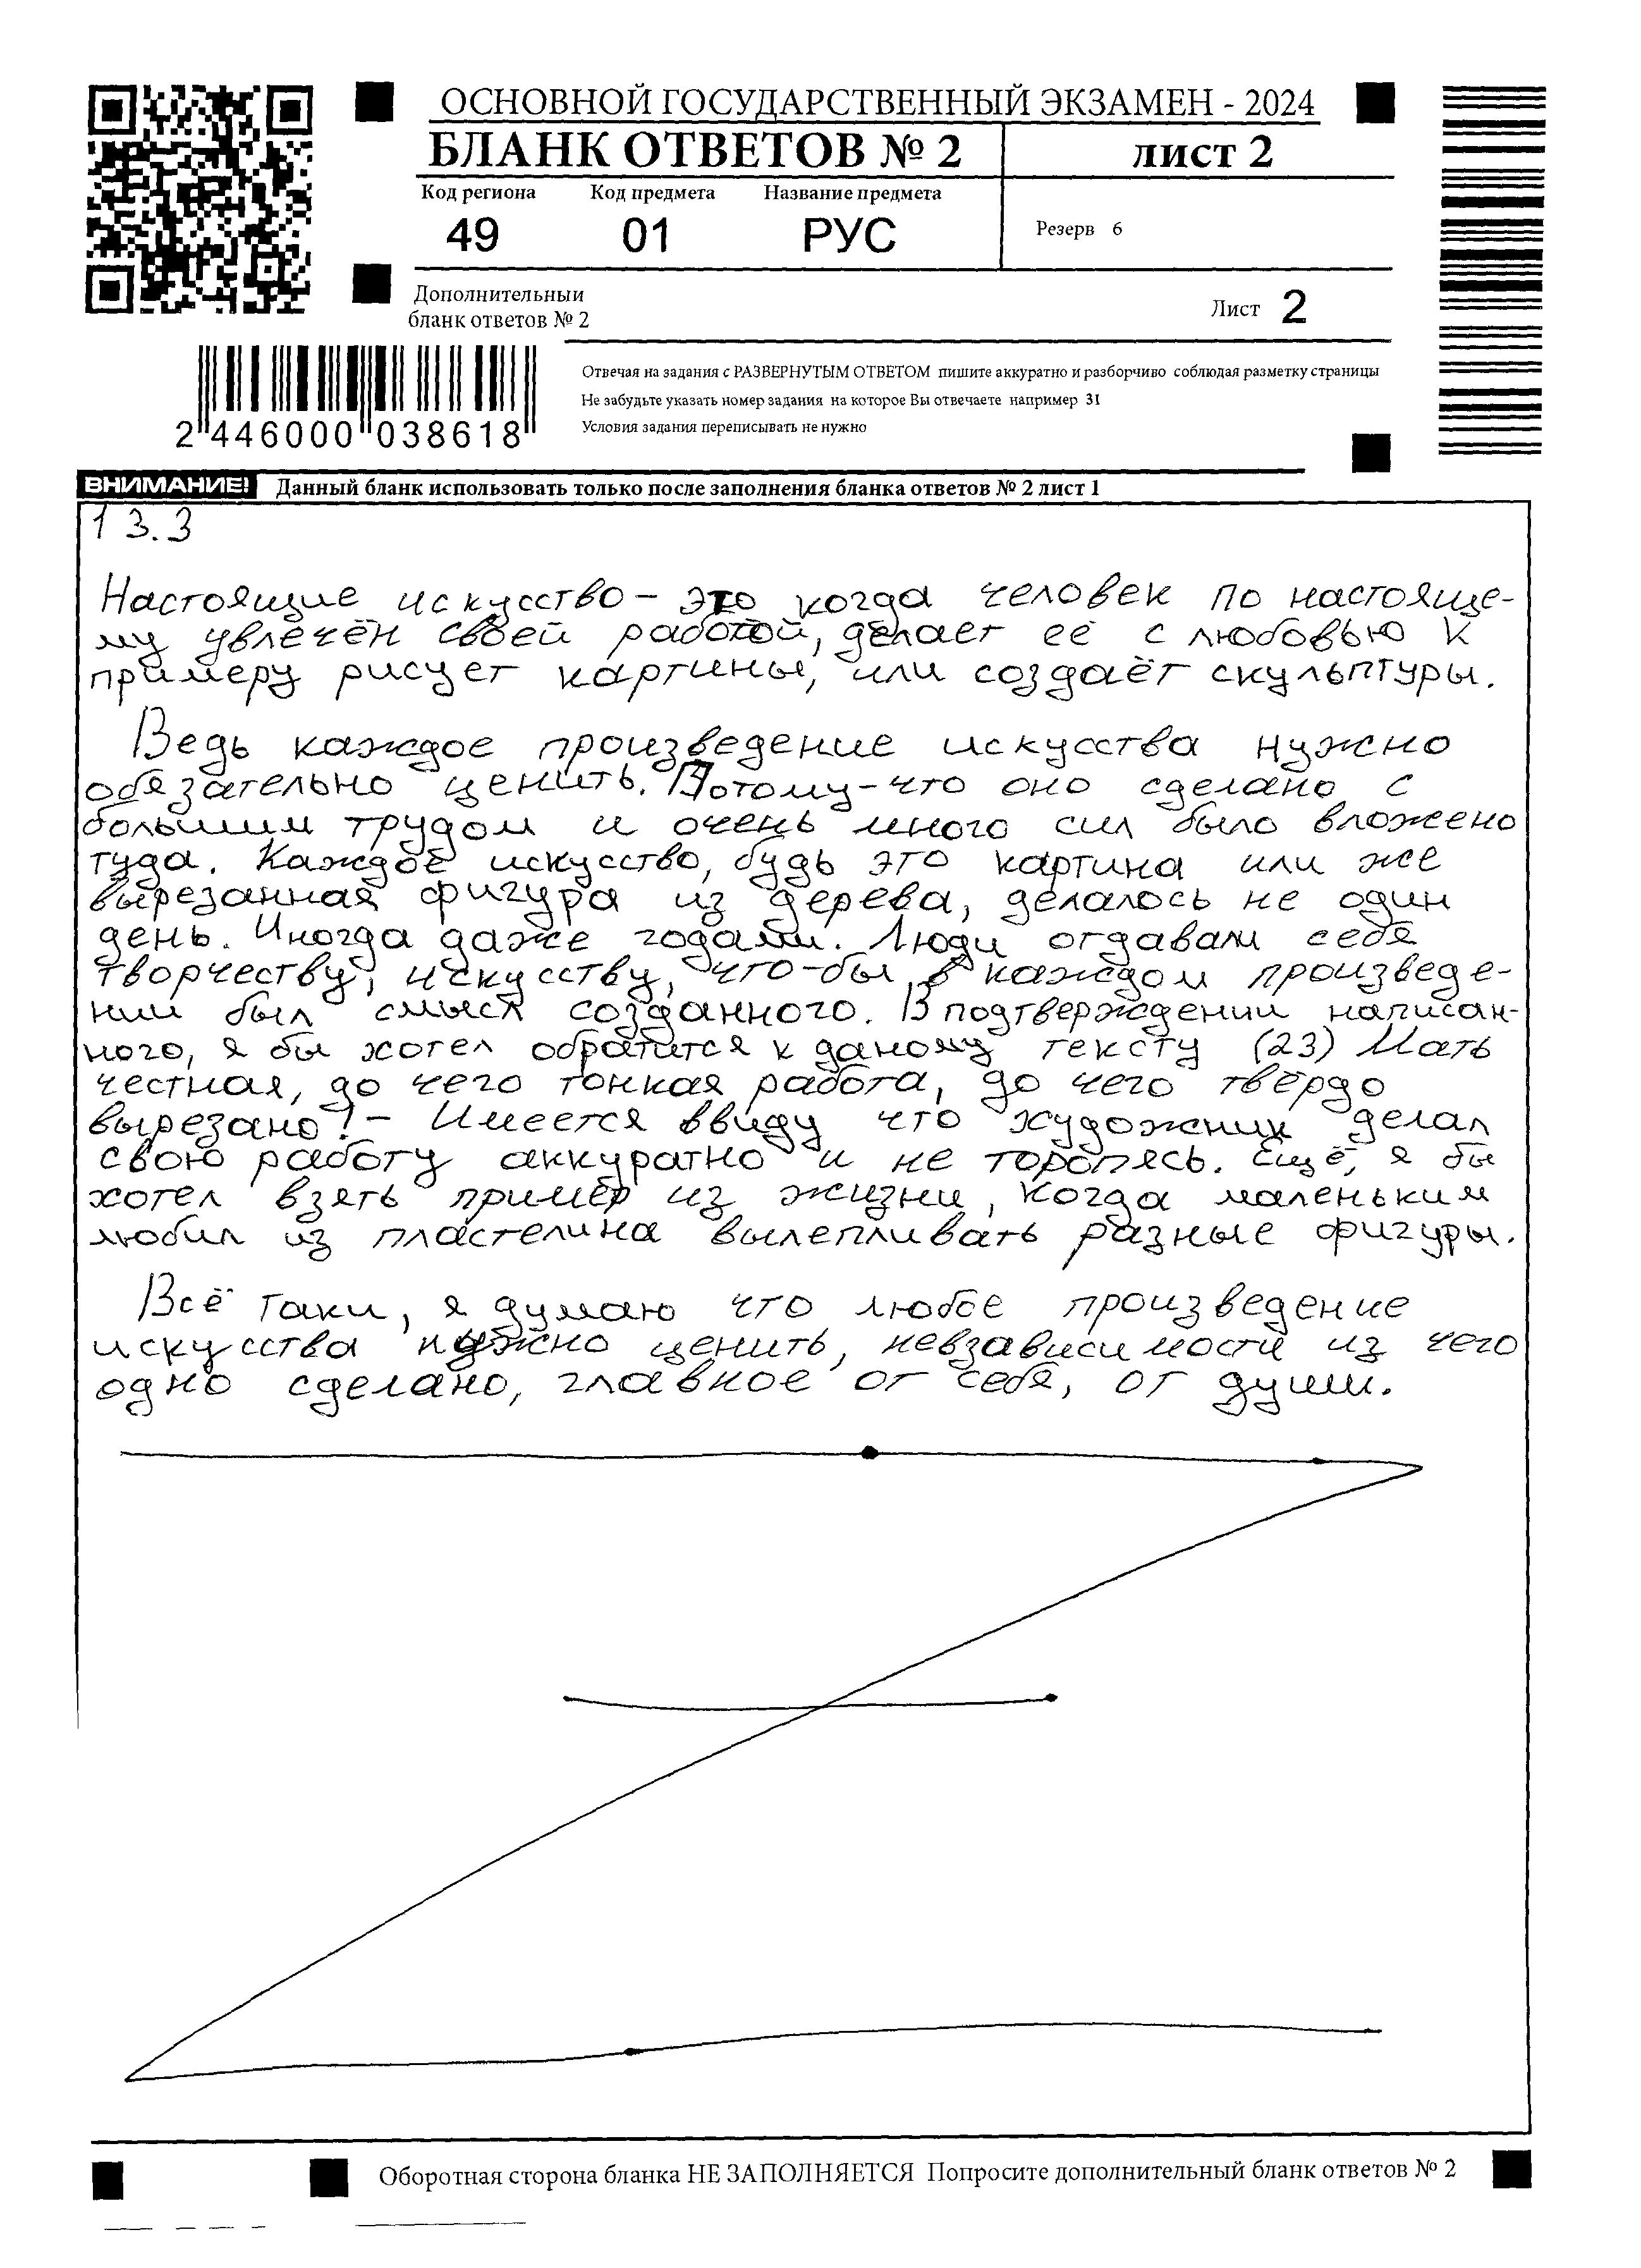 ОСНОВНОЙ ГОСУДАРСТВЕННЫЙ ЭКЗАМЕН - 2024
БЛАНК ОТВЕТОВ № 2 лист 2
Код региона Код предмета Название предмета
49 01 РУС
Резерв 6
Дополнительныи
бланк ответов № 2
Лист 2
Отвечая на задания с РАЗВЕРНУТЫМ ОТВЕТОМ пишите аккуратно и разборчиво соблюдая разметку страницы
Не забудьте указать номер задания на которое Вы отвечаете например 31
Условия задания переписывать не нужно
2 446000 038618
ВНИМАНИЕ! Данный бланк использовать только после заполнения бланка ответов № 2 лист 1
13.3
Настоящие искусство – это когда человек по настояще-
му увлечён своей работой, делает её с любовью к
примеру рисует картины, или создаёт скульптуры.
Ведь каждое произведение искусства нужно
обязательно ценить. Потому-что оно сделано с
большим трудом и очень много сил было вложено
туда. Каждое искусство, будь это картина или же
вырезанная фигура из дерева, делалось не один
день. Иногда даже годами. Люди отдавали себя
творчеству, искусству, что-бы в каждом произведе-
нии был смысл созданного. В подтверждении написан-
ного, я бы хотел обратится к даному тексту (23) Мать
честная, до чего тонкая работа, до чего твёрдо
вырезано! – Имеется ввиду что художник делал
свою работу аккуратно и не торопясь. Ещё, я бы
хотел взять пример из жизни, когда маленьким
любил из пластелина вылепливать разные фигуры.
Всё таки, я думаю что любое произведение
искусства нужно ценить, невзависимости из чего
одно сделано, главное от себя, от души.
Оборотная сторона бланка НЕ ЗАПОЛНЯЕТСЯ Попросите дополнительный бланк ответов № 2